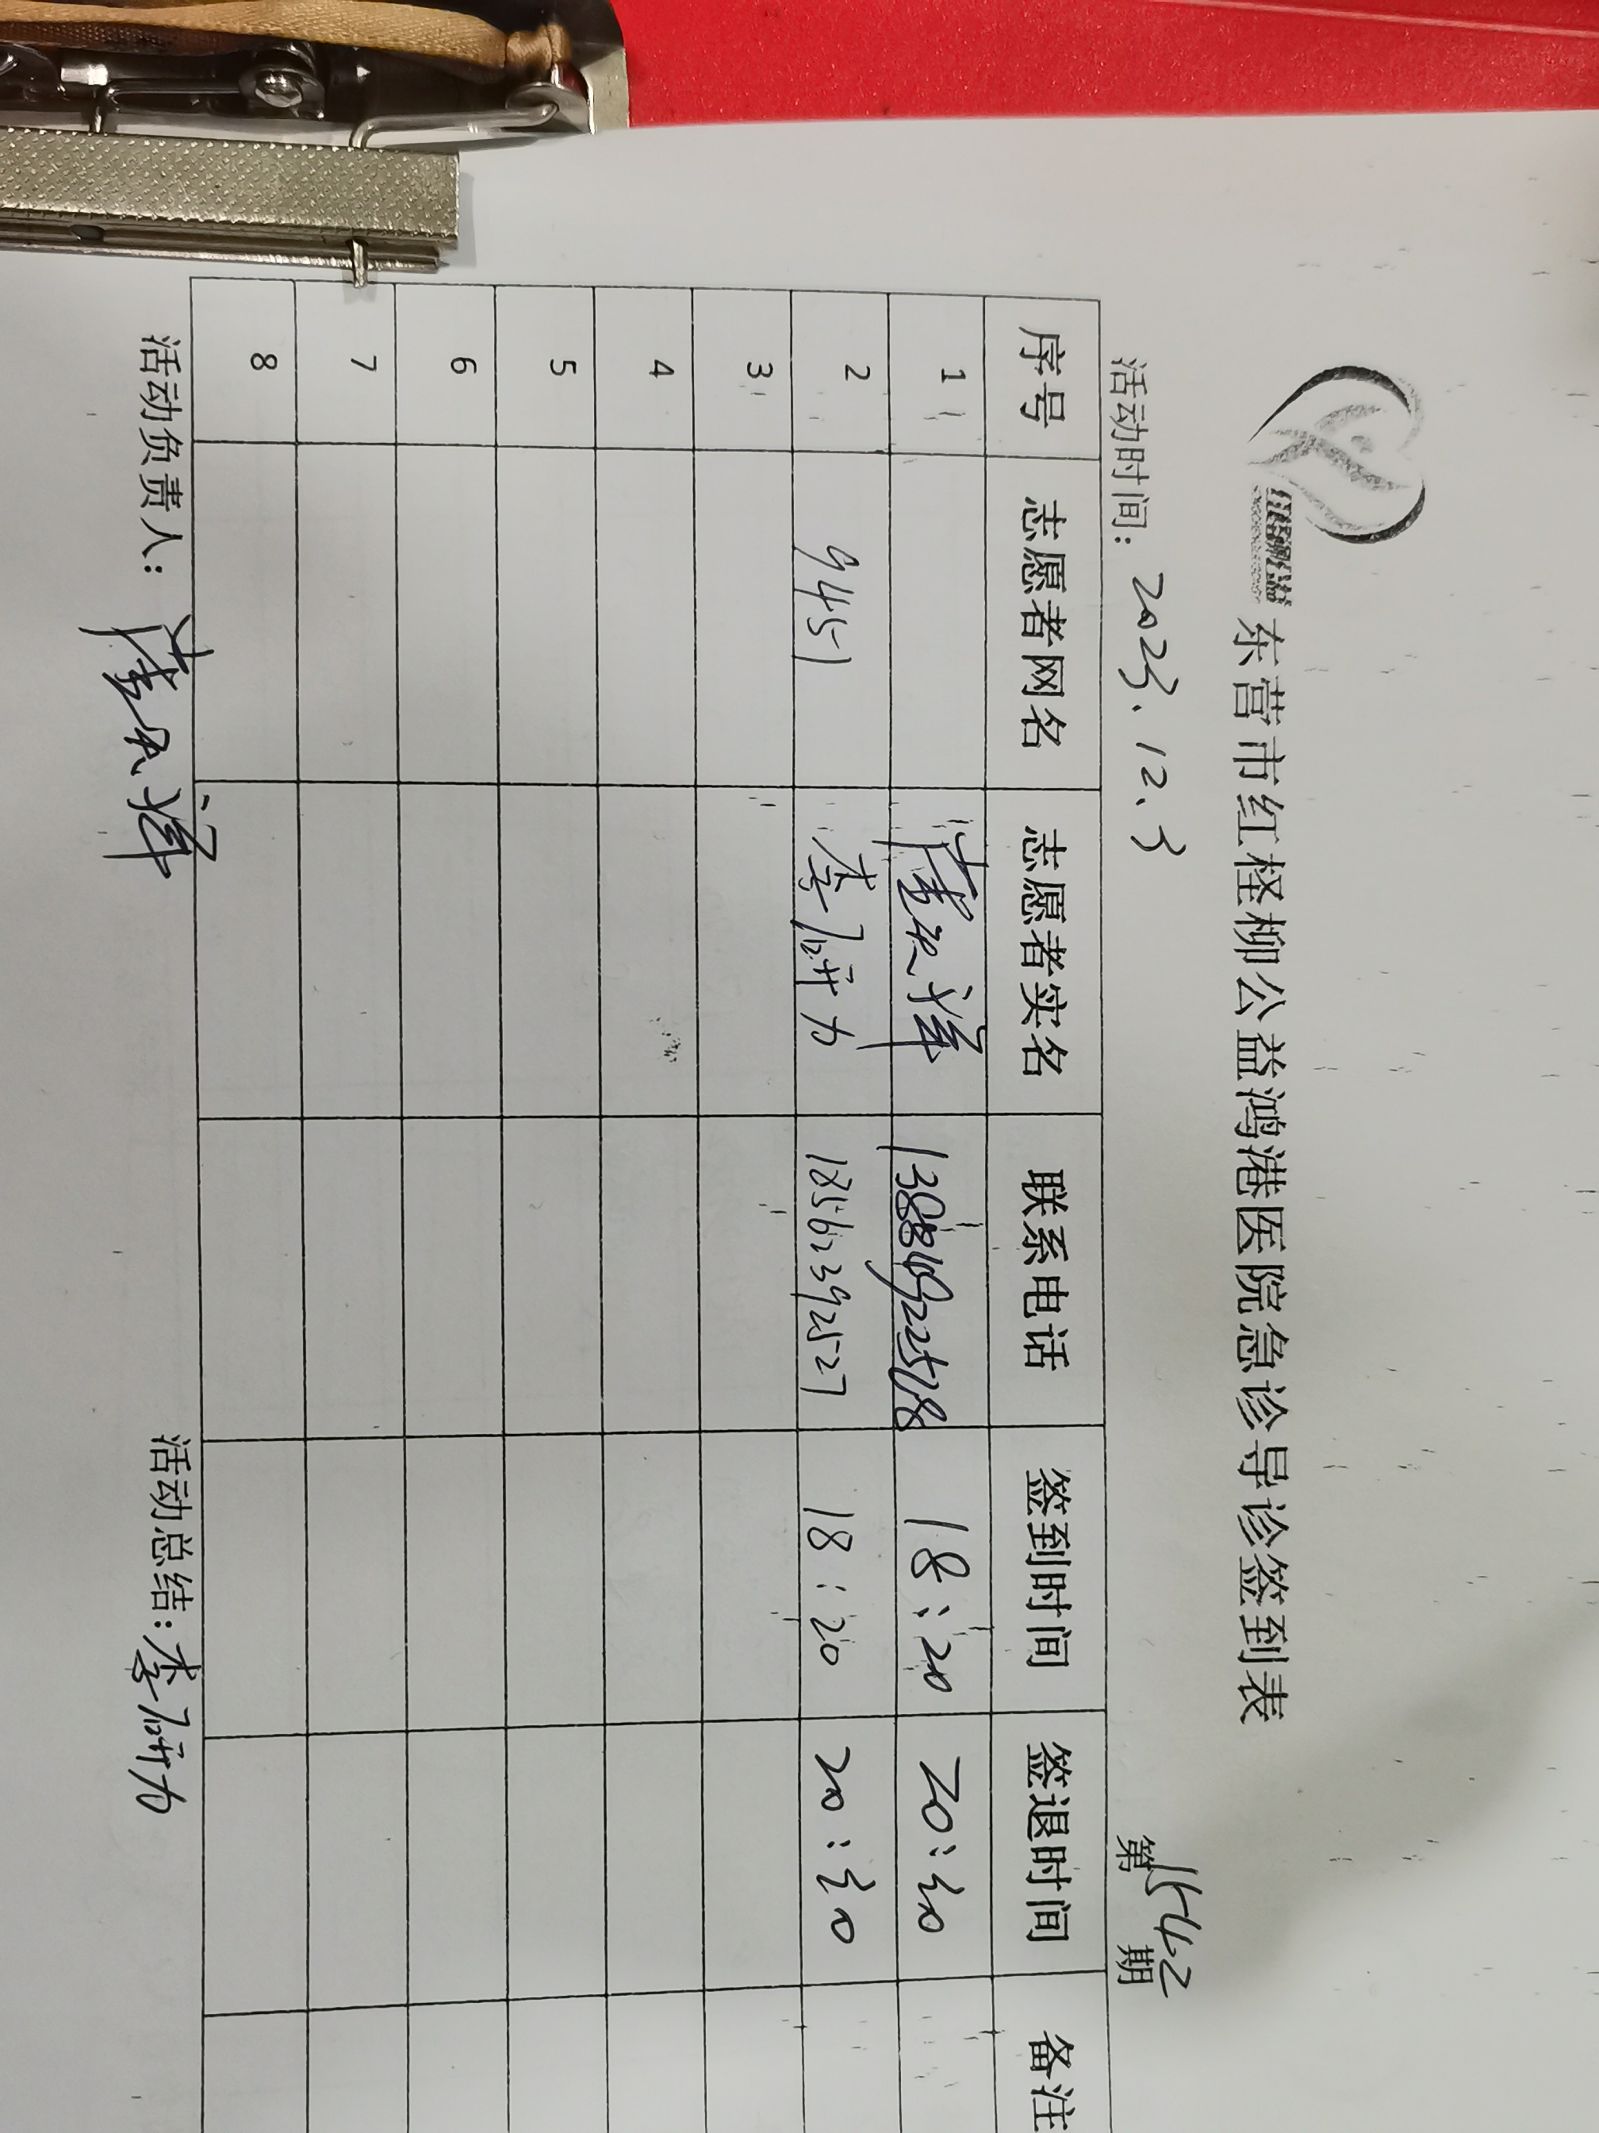 东营市红柽柳公益鸿港医院急诊导诊签到表
活动时间：2023.12.3 第1542期
序号 志愿者网名 志愿者实名 联系电话 签到时间 签退时间 备注
1 18:20 20:30
2 9451 李研力 18562392527 18:20 20:30
3
4
5
6
7
8
活动负责人： 活动总结：李研力